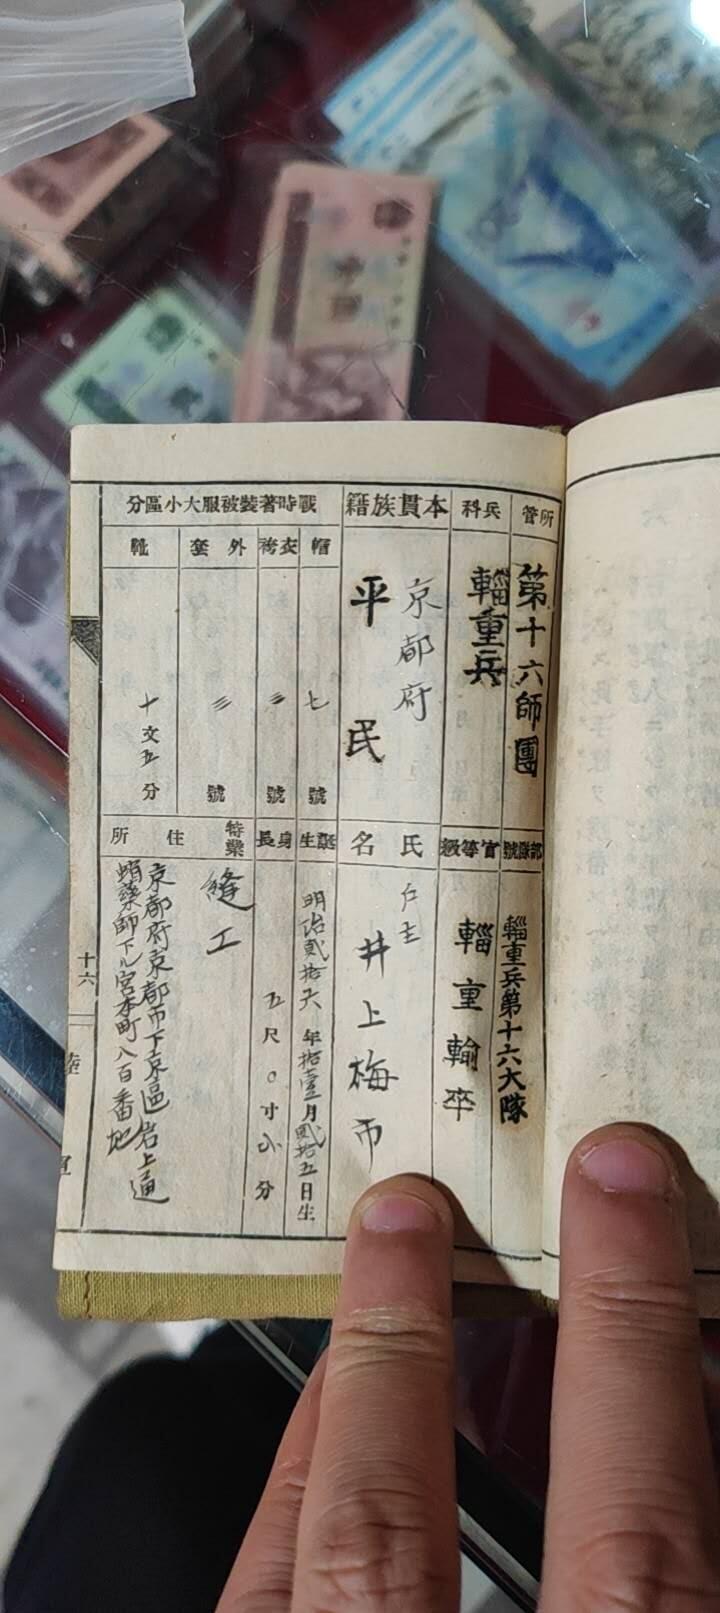 所管
第十六師團
兵科
輜重兵
本貫族籍
京都府
平民
戰時著裝被服大小區分
帽
七號
衣袴
三號
外套
三號
靴
十文五分
部隊號
輜重兵第十六大隊
官等級
輜重輸卒
氏名
戶主
井上梅市
誕生
明治貳拾六年拾壹月貳拾五日生
身長
五尺〇寸八分
特業
縫工
住所
京都府京都市下京區岩上通
蛸藥師下ル宮本町八百番地
十六
陸